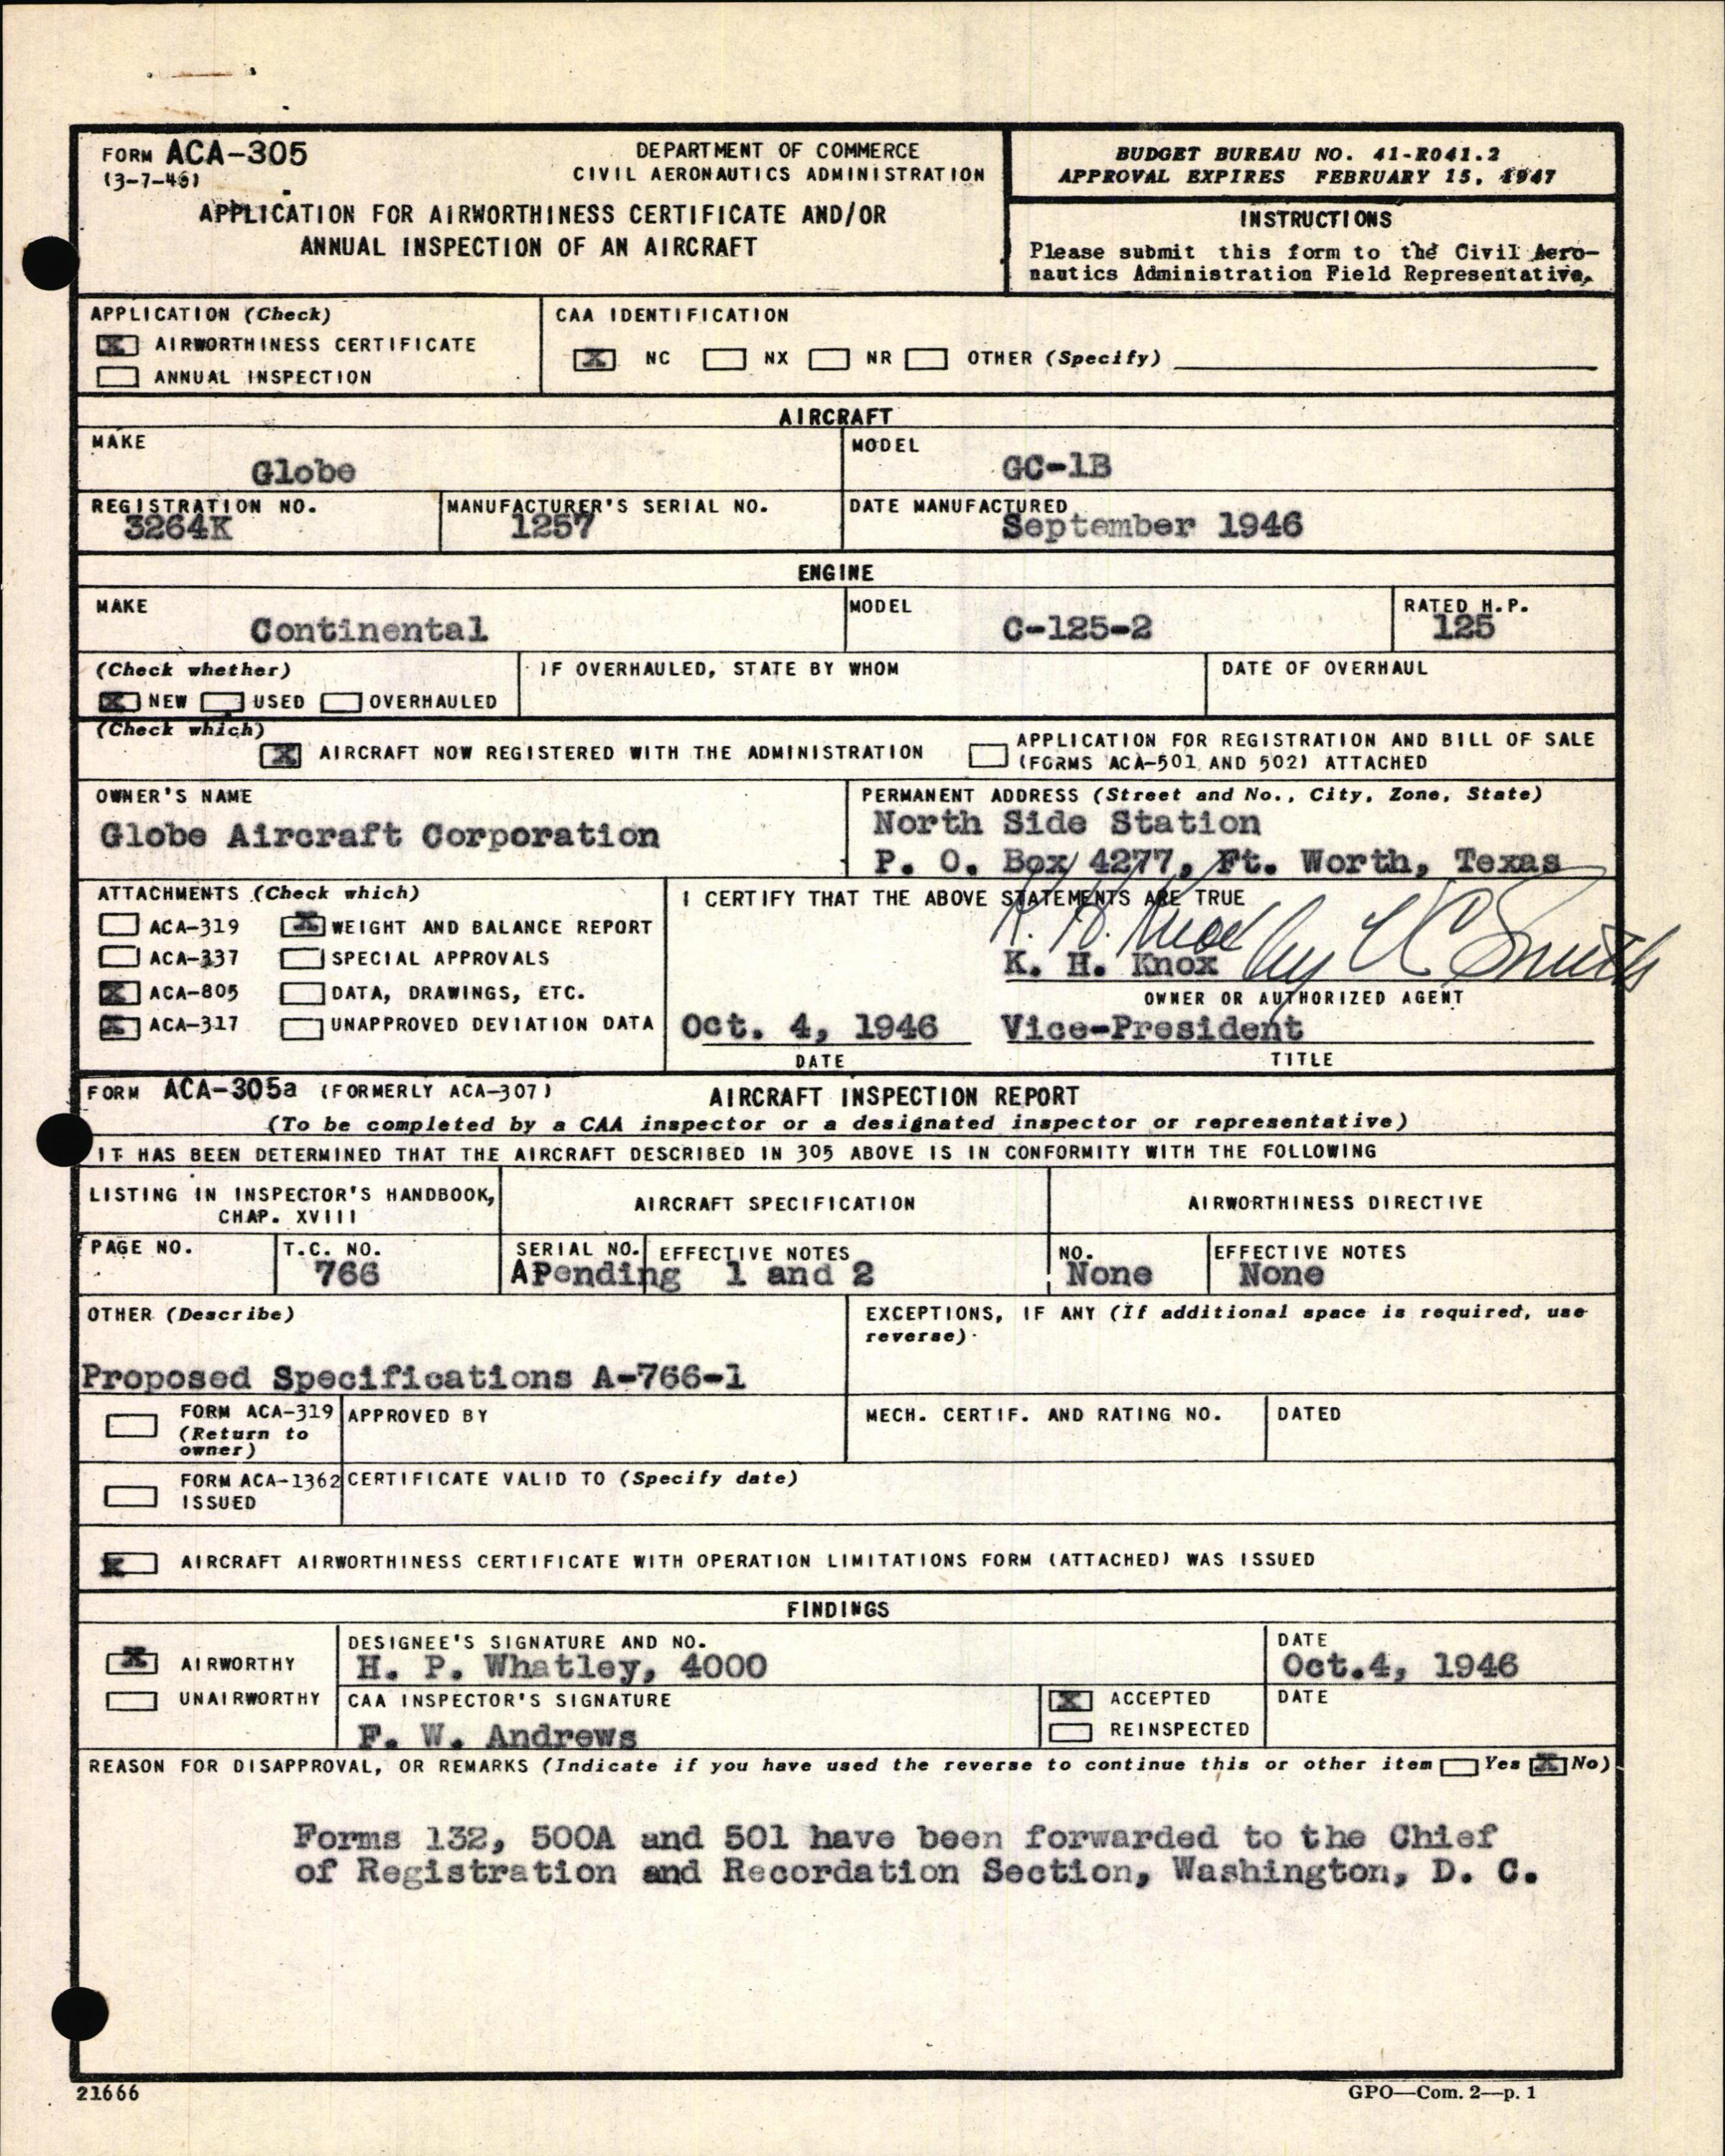 FORM ACA-305
(3-7-46)
DEPARTMENT OF COMMERCE
CIVIL AERONAUTICS ADMINISTRATION
APPLICATION FOR AIRWORTHINESS CERTIFICATE AND/OR
ANNUAL INSPECTION OF AN AIRCRAFT
BUDGET BUREAU NO. 41-R041.2
APPROVAL EXPIRES FEBRUARY 15, 1947
INSTRUCTIONS
Please submit this form to the Civil Aero-
nautics Administration Field Representative.
APPLICATION (Check)
X AIRWORTHINESS CERTIFICATE
ANNUAL INSPECTION
CAA IDENTIFICATION
X NC NX NR OTHER (Specify)
AIRCRAFT
MAKE
Globe
MODEL
GC-1B
REGISTRATION NO.
3264K
MANUFACTURER'S SERIAL NO.
1257
DATE MANUFACTURED
September 1946
ENGINE
MAKE
Continental
MODEL
C-125-2
RATED H.P.
125
(Check whether)
X NEW USED OVERHAULED
IF OVERHAULED, STATE BY WHOM
DATE OF OVERHAUL
(Check which)
X AIRCRAFT NOW REGISTERED WITH THE ADMINISTRATION
APPLICATION FOR REGISTRATION AND BILL OF SALE
(FORMS ACA-501 AND 502) ATTACHED
OWNER'S NAME
Globe Aircraft Corporation
PERMANENT ADDRESS (Street and No., City, Zone, State)
North Side Station
P. O. Box 4277, Ft. Worth, Texas
ATTACHMENTS (Check which)
ACA-319 X WEIGHT AND BALANCE REPORT
ACA-337 SPECIAL APPROVALS
X ACA-805 DATA, DRAWINGS, ETC.
X ACA-317 UNAPPROVED DEVIATION DATA
I CERTIFY THAT THE ABOVE STATEMENTS ARE TRUE
K. H. Knox by L C Smith
K. H. Knox
OWNER OR AUTHORIZED AGENT
Oct. 4, 1946 Vice-President
DATE TITLE
FORM ACA-305a (FORMERLY ACA-307)
AIRCRAFT INSPECTION REPORT
(To be completed by a CAA inspector or a designated inspector or representative)
IT HAS BEEN DETERMINED THAT THE AIRCRAFT DESCRIBED IN 305 ABOVE IS IN CONFORMITY WITH THE FOLLOWING
LISTING IN INSPECTOR'S HANDBOOK,
CHAP. XVIII
AIRCRAFT SPECIFICATION
AIRWORTHINESS DIRECTIVE
PAGE NO.
T.C. NO.
766
SERIAL NO.
APending
EFFECTIVE NOTES
1 and 2
NO.
None
EFFECTIVE NOTES
None
OTHER (Describe)
Proposed Specifications A-766-1
EXCEPTIONS, IF ANY (If additional space is required, use
reverse).
FORM ACA-319
(Return to
owner)
APPROVED BY
MECH. CERTIF. AND RATING NO.
DATED
FORM ACA-1362
ISSUED
CERTIFICATE VALID TO (Specify date)
X AIRCRAFT AIRWORTHINESS CERTIFICATE WITH OPERATION LIMITATIONS FORM (ATTACHED) WAS ISSUED
FINDINGS
X AIRWORTHY
UNAIRWORTHY
DESIGNEE'S SIGNATURE AND NO.
H. P. Whatley, 4000
DATE
Oct.4, 1946
CAA INSPECTOR'S SIGNATURE
F. W. Andrews
X ACCEPTED
REINSPECTED
DATE
REASON FOR DISAPPROVAL, OR REMARKS (Indicate if you have used the reverse to continue this or other item Yes X No)
Forms 132, 500A and 501 have been forwarded to the Chief
of Registration and Recordation Section, Washington, D. C.
21666
GPO—Com. 2—p. 1